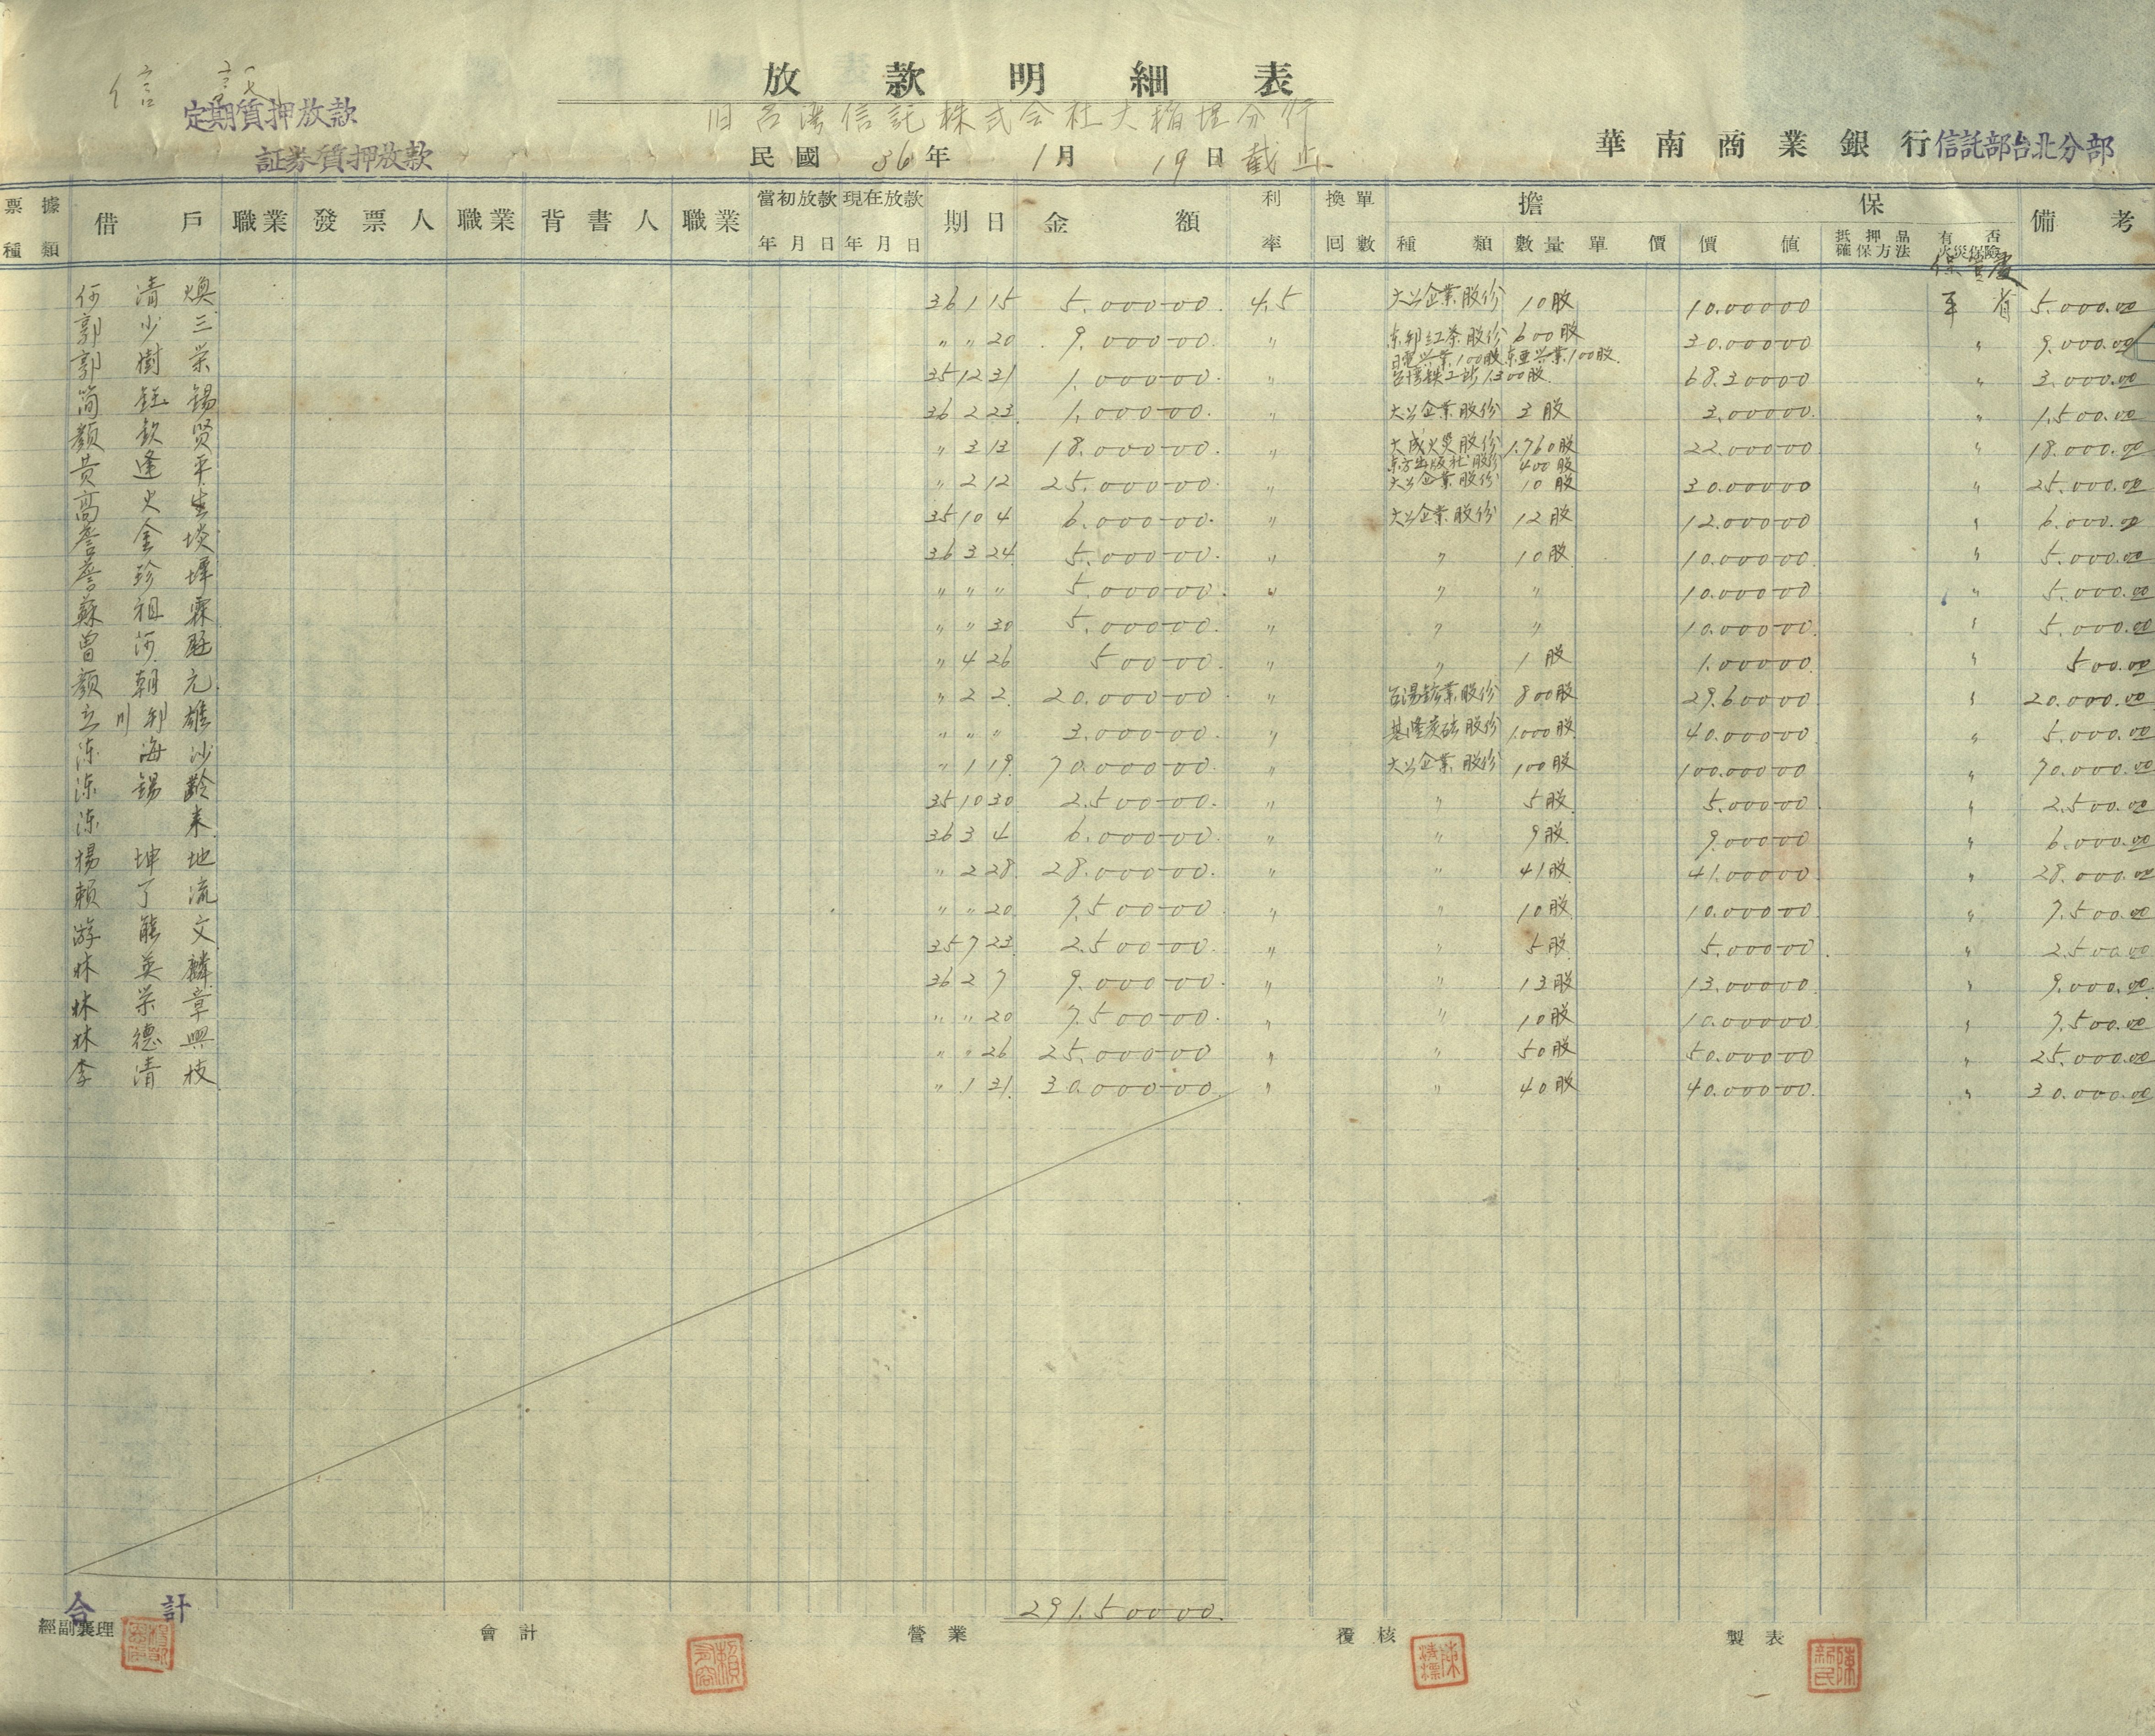 放款明細表
信託
定期質押放款
証券質押放款
旧台湾信託株式会社大稲埕分行
民國36年1月19日截止
華南商業銀行信託部台北分部
票據種類 借戶 職業 發票人 職業 背書人 職業 當初放款年月日 現在放款年月日 期日 金額 利率 換單回數 擔保 種類 數量 單價 價值 抵押品確保方法 有否火災保險 備考
何清煥 36 1 15 5.000 00 4.5 大公企業股份 10股 10.000 00 5.000.00
郭少三 〃 〃 20 9.000 00 〃 東邦紅茶股份 600股 30.000 00 〃 9.000.00
郭樹栄 35 12 31 1.000 00 〃 日電兴業100股 東亜兴業100股 台湾鉄工所1300股 68.300 00 〃 3.000.00
簡鈺錫 36 2 23 1.000 00 〃 大公企業股份 3股 3.000 00 〃 1.500.00
顏欽贤 〃 3 13 18.000 00 〃 大成火災股份 1.760股 22.000 00 〃 18.000.00
黃逢平 〃 2 12 25.000 00 〃 東方出版社股份 400股 大公企業股份 10股 30.000 00 〃 25.000.00
高火生 35 10 4 6.000 00 〃 大公企業股份 12股 12.000 00 〃 6.000.00
詹金埮 36 3 24 5.000 00 〃 〃 10股 10.000 00 〃 5.000.00
詹珍墿 〃 〃 〃 5.000 00 〃 〃 〃 10.000 00 〃 5.000.00
蘇祖霖 〃 〃 30 5.000 00 〃 〃 〃 10.000 00 〃 5.000.00
曾 〃 4 26 500 00 〃 〃 1股 1.000 00 〃 500.00
顏朝元 〃 2 2 20.000 00 〃 台湾鉱業股份 800股 29.600 00 〃 20.000.00
立川邦雄 〃 〃 〃 3.000 00 〃 基隆炭砿股份 1.000股 40.000 00 〃 5.000.00
陈海沙 〃 1 19 70.000 00 〃 大公企業股份 100股 100.000 00 〃 70.000.00
陈錫齡 35 10 30 2.500 00 〃 〃 5股 5.000 00 〃 2.500.00
陈来 36 3 4 6.000 00 〃 〃 9股 9.000 00 〃 6.000.00
楊坤地 〃 2 28 28.000 00 〃 〃 41股 41.000 00 〃 28.000.00
賴丁流 〃 〃 20 7.500 00 〃 〃 10股 10.000 00 〃 7.500.00
游熊文 35 7 23 2.500 00 〃 〃 5股 5.000 00 〃 2.500.00
林英麟 36 2 7 9.000 00 〃 〃 13股 13.000 00 〃 9.000.00
林栄章 〃 〃 20 7.500 00 〃 〃 10股 10.000 00 〃 7.500.00
林德興 〃 〃 26 25.000 00 〃 〃 50股 50.000 00 〃 25.000.00
李清枝 〃 1 31 30.000 00 〃 〃 40股 40.000 00 〃 30.000.00
合計 291.500 00
經副襄理 會計 營業 覆核 製表
陳清漂 陳新民